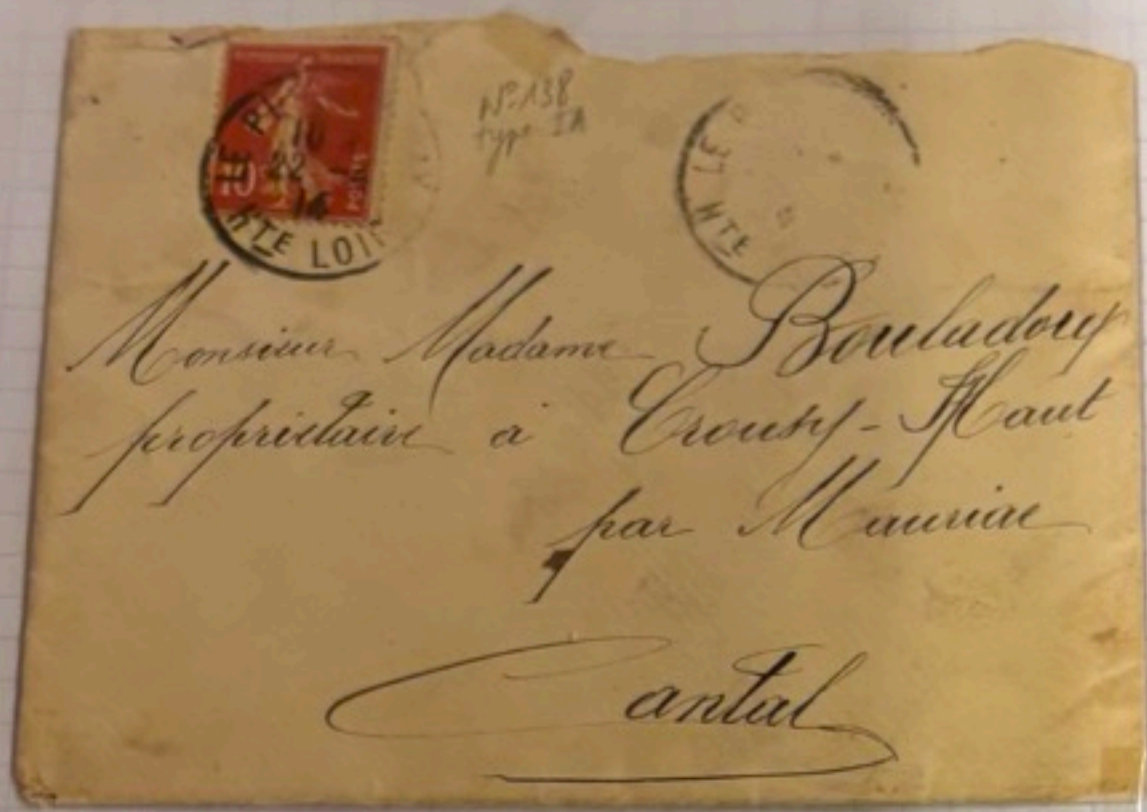 10
POSTES
LE P
10
22 - 1
14
HTE LOIRE
N° 138
type IA
LE P
HTE
Monsieur Madame Bouladoux
propriétaire à Crousy-Haut
par Mauriac
Cantal